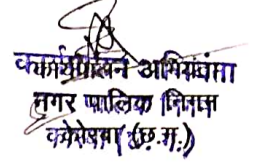 कार्यपालन अभियंता
नगर पालिक निगम
(छ.ग.)